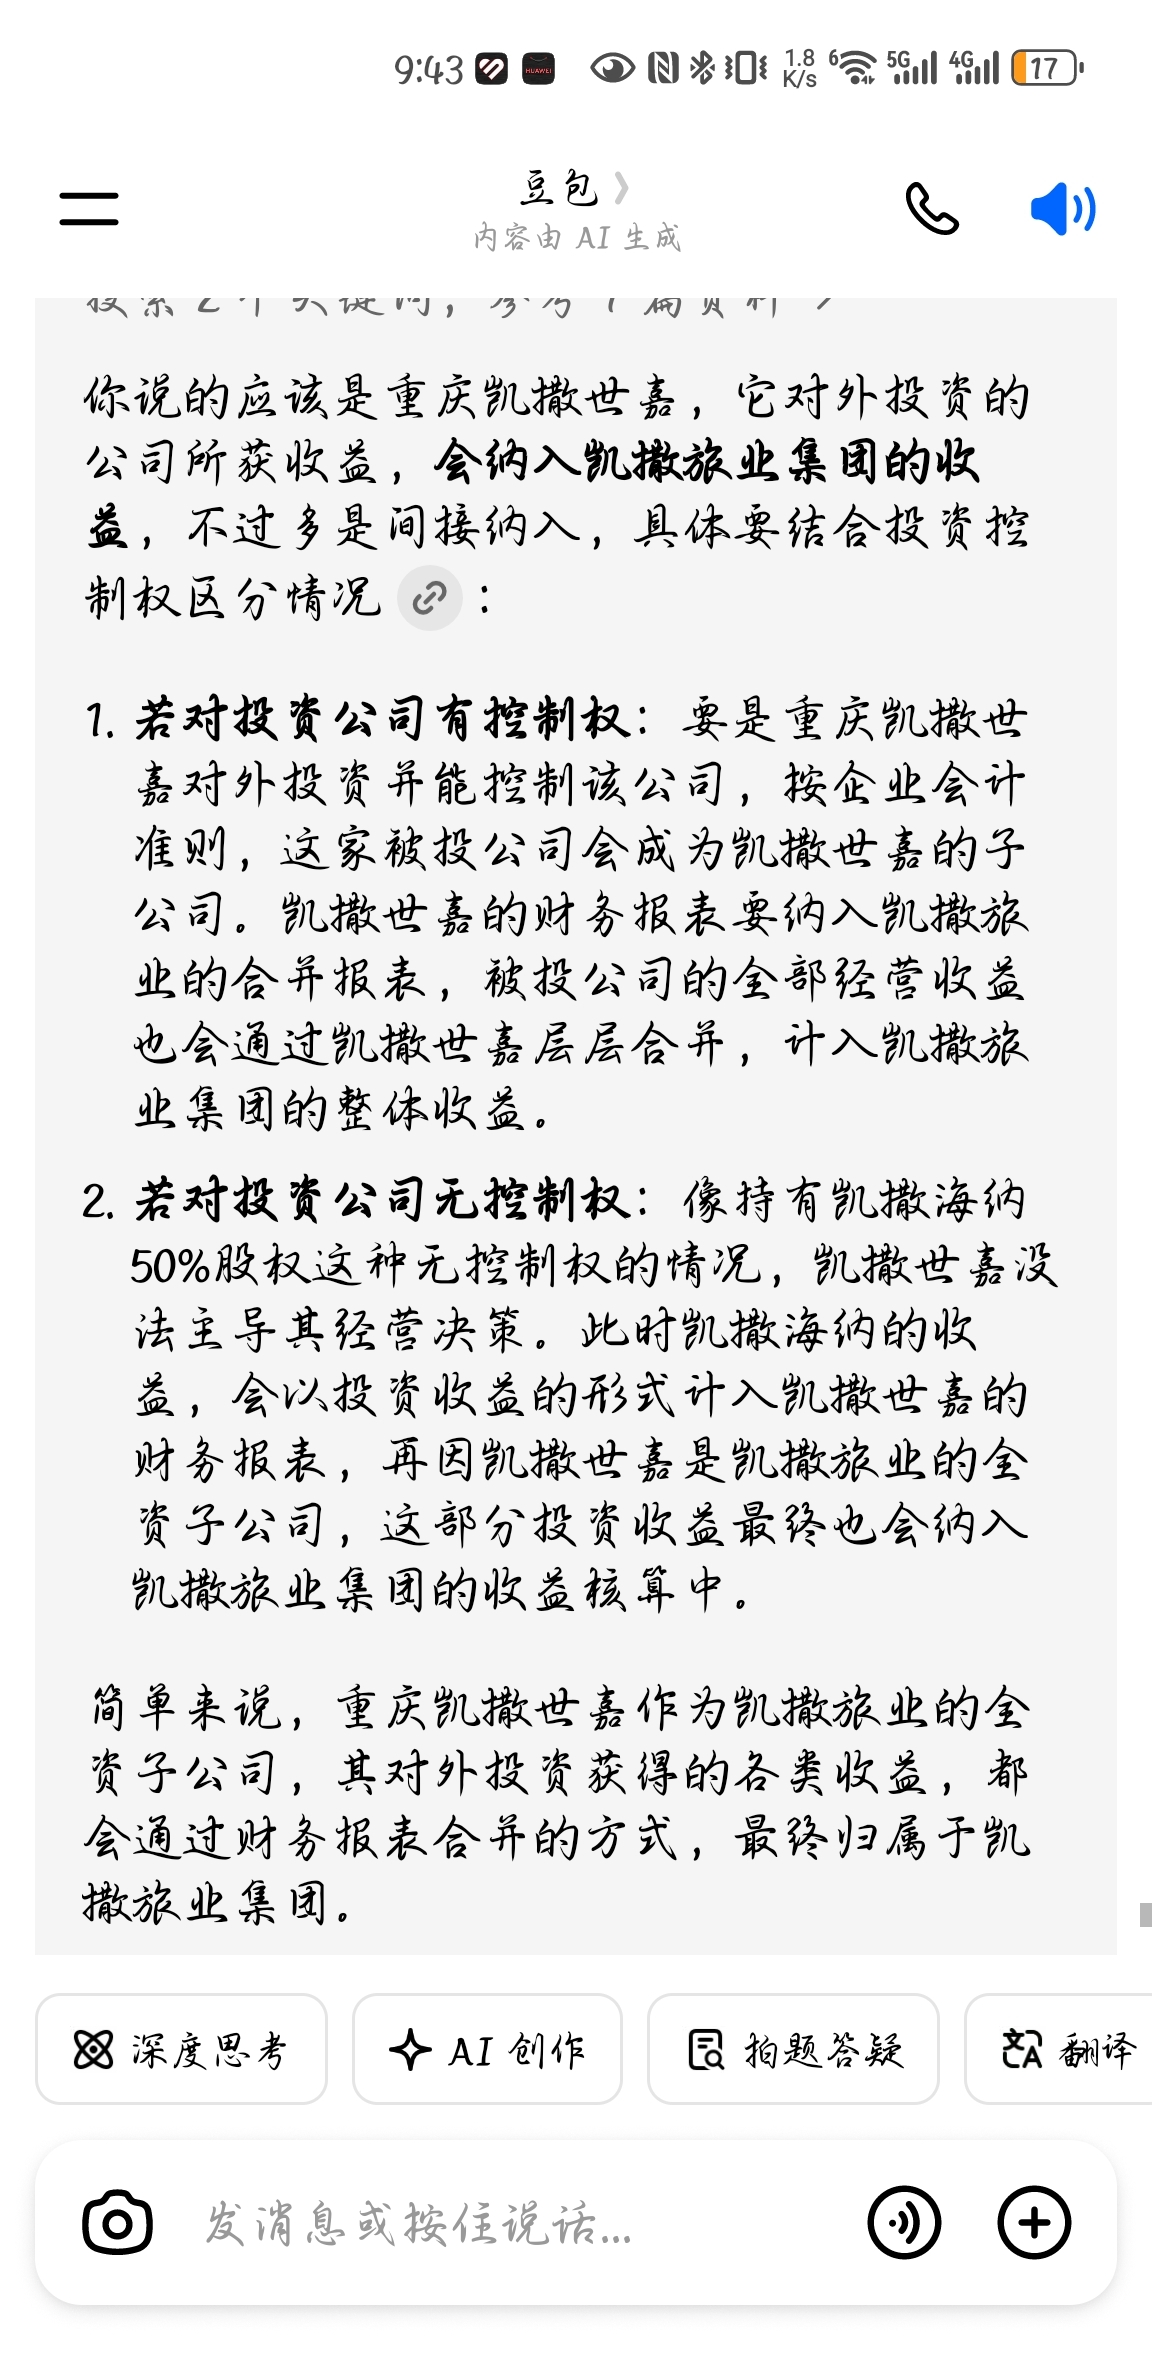 9:43 HUAWEI 1.8 K/s 6 5G 4G 17
豆包
内容由 AI 生成
你说的应该是重庆凯撒世嘉，它对外投资的
公司所获收益，会纳入凯撒旅业集团的收
益，不过多是间接纳入，具体要结合投资控
制权区分情况：
1. 若对投资公司有控制权：要是重庆凯撒世
嘉对外投资并能控制该公司，按企业会计
准则，这家被投公司会成为凯撒世嘉的子
公司。凯撒世嘉的财务报表要纳入凯撒旅
业的合并报表，被投公司的全部经营收益
也会通过凯撒世嘉层层合并，计入凯撒旅
业集团的整体收益。
2. 若对投资公司无控制权：像持有凯撒海纳
50%股权这种无控制权的情况，凯撒世嘉没
法主导其经营决策。此时凯撒海纳的收
益，会以投资收益的形式计入凯撒世嘉的
财务报表，再因凯撒世嘉是凯撒旅业的全
资子公司，这部分投资收益最终也会纳入
凯撒旅业集团的收益核算中。
简单来说，重庆凯撒世嘉作为凯撒旅业的全
资子公司，其对外投资获得的各类收益，都
会通过财务报表合并的方式，最终归属于凯
撒旅业集团。
深度思考 AI 创作 拍题答疑 翻译
发消息或按住说话...